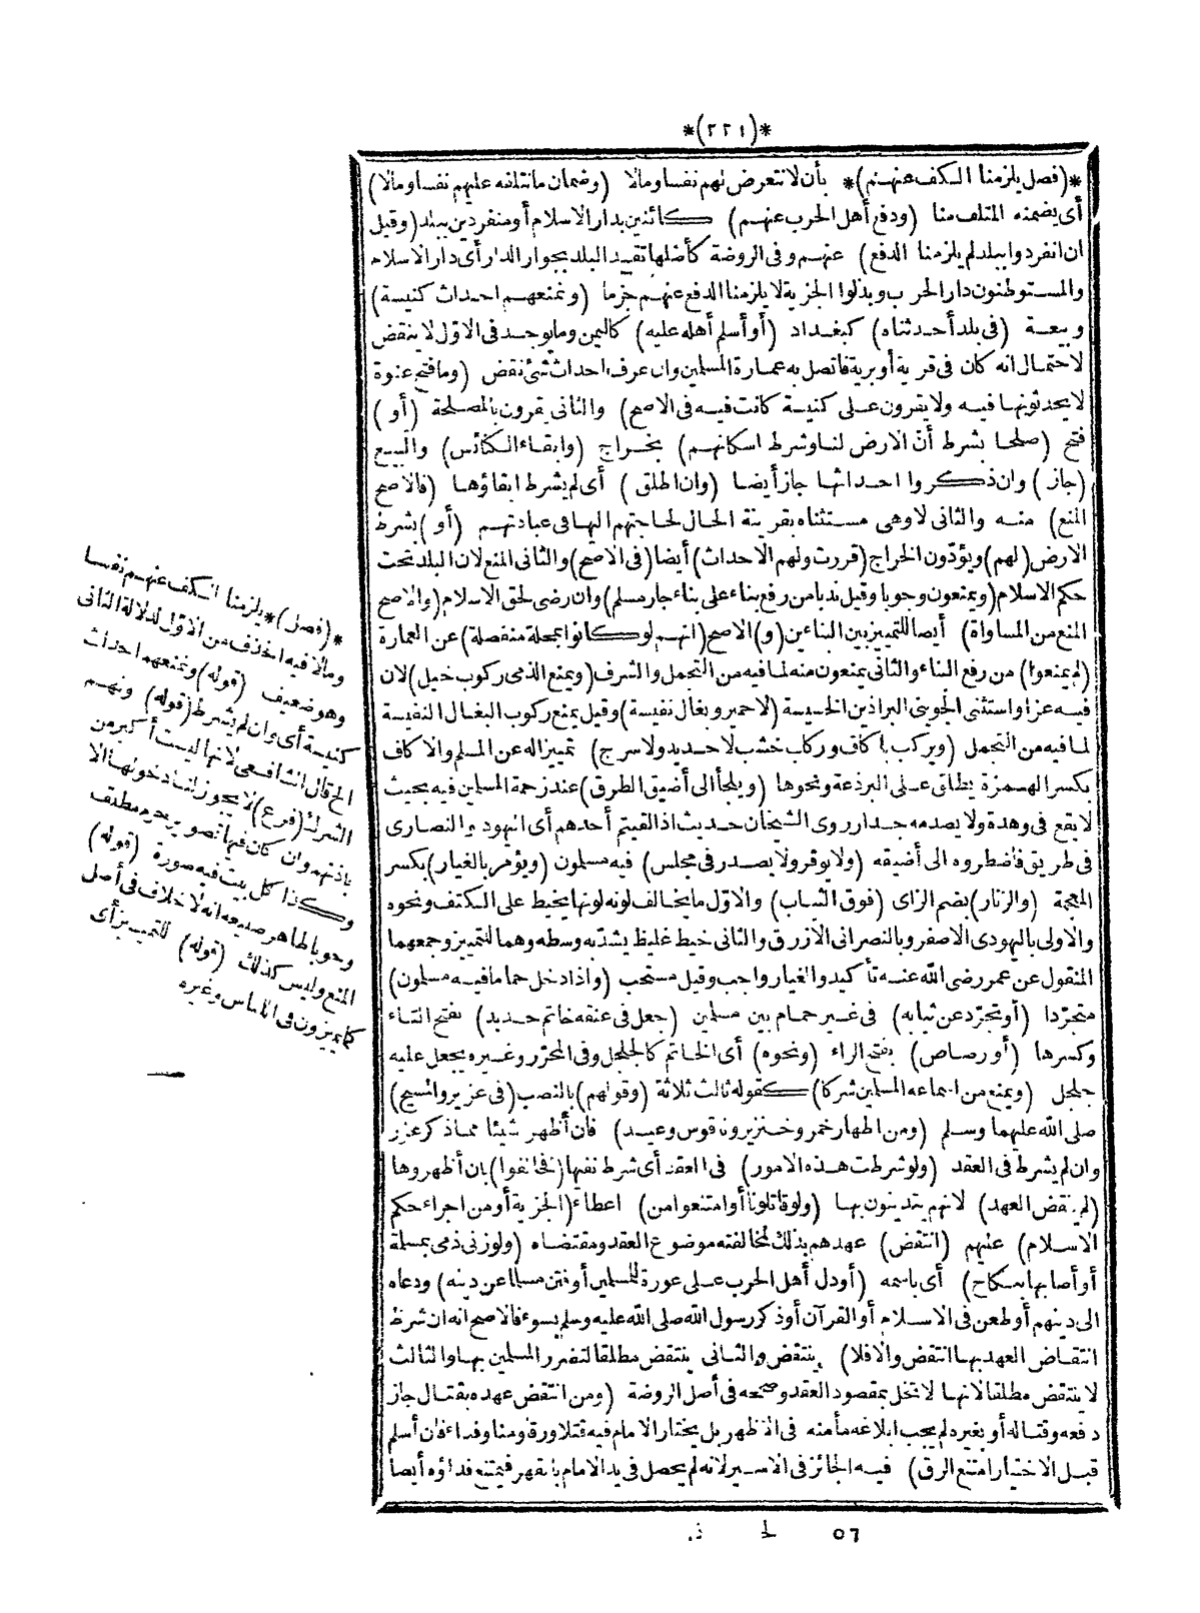 *(٢٢١)*
*(فصل يلزمنا الكف عنهم)* بأن لا نتعرض لهم نفسا ومالا (وضمان ما نتلفه عليهم نفسا ومالا)
أى يضمنه المتلف منا (ودفع أهل الحرب عنهم) كائنين بدار الاسلام أو منفردين ببلد (وقيل
ان انفردوا ببلد لم يلزمنا الدفع) عنهم وفى الروضة كأصلها تقييد البلد بجوار الدار أى دار الاسلام
والمستوطنون دار الحرب وبذلوا الجزية لا يلزمنا الدفع عنهم جزما (ونمنعهم احداث كنيسة)
وبيعة (فى بلد أحدثناه) كبغداد (أو أسلم أهله عليه) كاليمن وما يوجد فى الاول لا ينقض
لاحتمال انه كان فى قرية أو برية فاتصل به عمارة المسلمين وان عرف احداث شئ نقض (وما فتح عنوة
لا يحدثونها فيه ولا يقرون على كنيسة كانت فيه فى الاصح) والثانى يقرون بالمصلحة (أو)
فتح (صلحا بشرط أن الارض لنا وشرط اسكانهم) بخراج (وابقاء الكنائس) والبيع
(جاز) وان ذكروا احداثها جاز أيضا (وان أطلق) أى لم يشرط ابقاؤها (فالاصح
المنع) منه والثانى لا وهى مستثناه بقرينة الحال لحاجتهم اليها فى عبادتهم (أو) بشرط
الارض (لهم) ويؤدّون الخراج (قررت ولهم الاحداث) أيضا (فى الاصح) والثانى المنع لان البلد تحت
حكم الاسلام (ويمنعون وجوبا وقيل ندبا من رفع بناء على بناء جار مسلم) وان رضى لحق الاسلام (والاصح
المنع من المساواة) أيضا للتمييز بين البناءين (و) الاصح (انهم لو كانوا بمحلة منفصلة) عن العمارة
(لم يمنعوا) من رفع البناء والثانى يمنعون منه لما فيه من التجمل والشرف (ويمنع الذمى ركوب خيل) لان
فيه عزا واستثنى الجوينى البراذين الخسيسة (لا حمير وبغال نفيسة) وقيل يمنع ركوب البغال النفيسة
لما فيه من التجمل (ويركب باكاف وركاب خشب لا حديد ولا سرج) تمييزا له عن المسلم والاكاف
بكسر الهمزة يطلق على البرذعة ونحوها (ويلجأ الى أضيق الطرق) عند زحمة المسلمين فيه بحيث
لا يقع فى وهدة ولا يصدمه جدار روى الشيخان حديث اذا لقيتم أحدهم أى اليهود والنصارى
فى طريق فاضطروه الى أضيقه (ولا يوقر ولا يصدر فى مجلس) فيه مسلمون (ويؤمر بالغيار) بكسر
المعجمة (والزنار) بضم الزاى (فوق الثياب) والاول ما يخالف لونه لونها يخيط على الكتف ونحوه
والاولى باليهودى الاصفر وبالنصرانى الازرق والثانى خيط غليظ يشدّ به وسطه وهما للتمييز وجمعهما
المنقول عن عمر رضى الله عنه تأكيد والغيار واجب وقيل مستحب (واذا دخل حماما فيه مسلمون)
متجرّدا (أو تجرّد عن ثيابه) فى غير حمام بين مسلمين (جعل فى عنقه خاتم حديد) بفتح التاء
وكسرها (أو رصاص) بفتح الراء (ونحوه) أى الخاتم كالجلجل وفى المحرّر وغيره يجعل عليه
جلجل (ويمنع من اسماعه المسلمين شركا) كقوله ثالث ثلاثة (وقولهم) بالنصب (فى عزير والمسيح)
صلى الله عليهما وسلم (ومن اظهار خمر وخنزير وناقوس وعيد) فان أظهر شيئا مما ذكر عزر
وان لم يشرط فى العقد (ولو شرطت هذه الامور) فى العقد أى شرط نفيها (فخالفوا) بان أظهروها
(لم ينقض العهد) لانهم يتدينون بها (ولو قاتلونا أو امتنعوا من) اعطاء (الجزية أو من اجراء حكم
الاسلام) عليهم (انتقض) عهدهم بذلك لمخالفته موضوع العقد ومقتضاه (ولو زنى ذمى بمسلمة
أو أصابها بنكاح) أى باسمه (أو دل أهل الحرب على عورة للمسلمين أو فتن مسلما عن دينه) ودعاه
الى دينهم أو طعن فى الاسلام أو القرآن أو ذكر رسول الله صلى الله عليه وسلم بسوء فالاصح انه ان شرط
انتقاض العهد بها انتقض والا فلا) ينتقض والثانى ينتقض مطلقا لتضرر المسلمين بها والثالث
لا ينتقض مطلقا لانها لا تخل بمقصود العقد وصححه فى أصل الروضة (ومن انتقض عهده بقتال جاز
دفعه وقتاله أو بغيره لم يجب ابلاغه مأمنه فى الاظهر بل يختار الامام فيه قتلا ورقا ومنا وفداء فان أسلم
قبل الاختيار امتنع الرق) فيه الجائز فى الاسير لانه لم يحصل فى يد الامام بالقهر فيمتنع فداؤه أيضا
*(فصل)* يلزمنا الكف عنهم نفسا
ومالا فيه الحذف من الاول لدلالة الثانى
وهو ضعيف (قوله) ونمنعهم احداث
كنيسة أى وان لم يشرط (قوله) ونهم
الخ قال الشافعى لانها ليست أكبر من
الشرك (فرع) لا يجوز لنا دخولها الا
باذنهم وان كان فيها تصوير حرم مطلقا
وكذا كل بيت فيه صورة (قوله)
وجوبا ظاهر صنيعه انه لا خلاف فى أصل
المنع وليس كذلك (قوله) للتمييز أى
كما يميزون فى اللباس وغيره
٥٦ لح نى